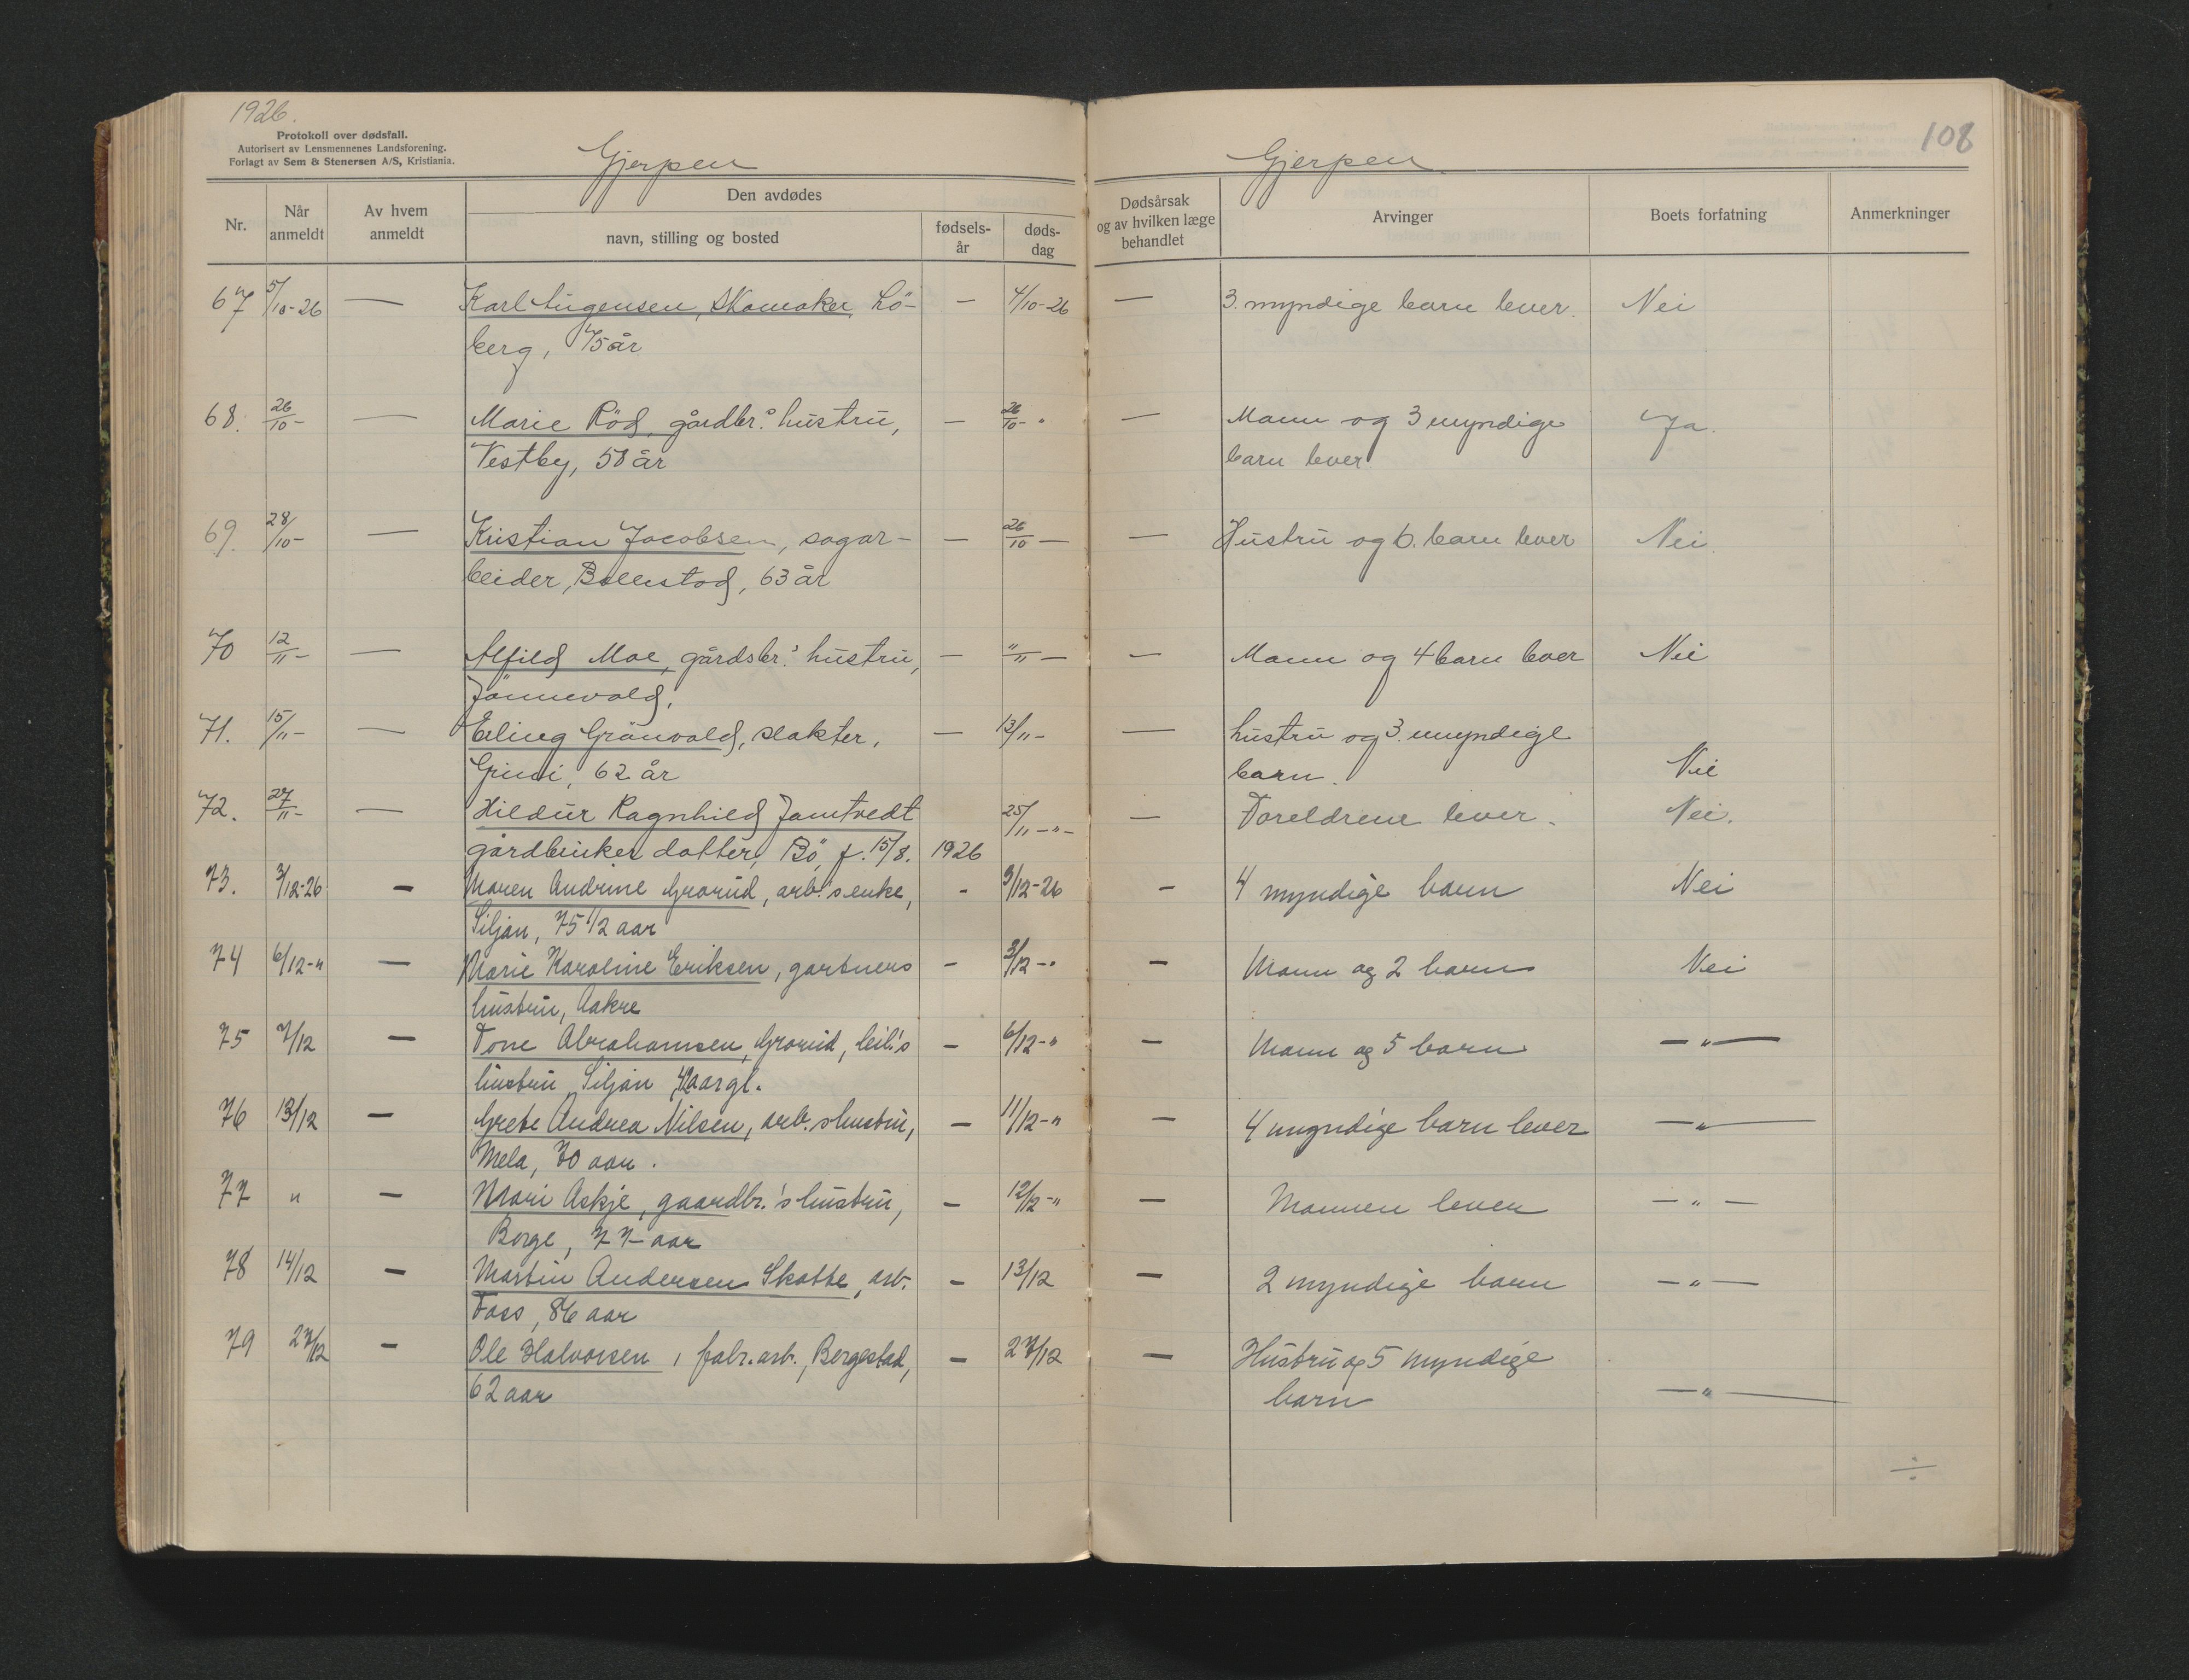 1926.
Protokoll over dødsfall.
Autorisert av Lensmennenes Landsforening.
Forlagt av Sem & Stenersen A/S, Kristiania.
Gjerpen
Nr.
Når anmeldt
Av hvem anmeldt
Den avdødes
navn, stilling og bosted
fødsels-år
døds-dag
Gjerpen
108
Dødsårsak og av hvilken læge behandlet
Arvinger
Boets forfatning
Anmerkninger
67 5/10-26 — Karl skomaker, Lö- — 4/10-26 — 3 myndige barn lever. Nei
berg, 75 år
68. 26/10- — Marie Röd, gårdbr.s hustru, — 26/10- " — Mann og 3 myndige Ja.
Vestby, 58 år barn lever
69. 28/10- — Kristian Jacobsen, sagar- — 26/10 — — Hustru og 6. barn lever Nei.
beider, Bollestad, 63 år
70 12/11- — Alfild Moe, gårdsbr.s hustru, — "/11 — — Mann og 4 barn lever Nei
Jönnevald,
71. 15/11- — Erling Grönvold, slakter, — 13/11- — hustru og 3. umyndige
Grini, 62 år barn. Nei
72. 27/11- — Hildur Ragnhild Jamtvedt 25/11-"- — Foreldrene lever. Nei.
gårdbruker datter, Bö, f. 15/8. 1926
73. 3/12-26 — Maren Andrine Grorud, arb.'s enke, - 3/12-26 - 4 myndige barn Nei
Siljan, 75 1/2 aar
74 6/12-" — Marie Karoline Eriksen, gartners - 3/12-" — Mann og 2 barn Nei
hustru, Aakre
75 7/12 — Tone Abrahamsen, Grorud, hustru, Siljan - 6/12-" — Mann og 5 barn — " —
42 aar gl.
76 13/12 — Grete Andrea Nilsen, arb.s hustru, — 11/12-" — 4 myndige barn lever — " —
Mela, 70 aar.
77 " — Mari Askje, gaardbr.'s hustru, — 12/12-" — Mannen lever — " —
Borge, 77 aar
78 14/12 — Martin Andersen Skotte, arb. — 13/12 — 2 myndige barn — " —
Foss, 86 aar
79 27/12 — Ole Halvorsen, fabr. arb., Bergestad, — 27/12 — Hustru og 5 myndige
62 aar barn — " —
÷